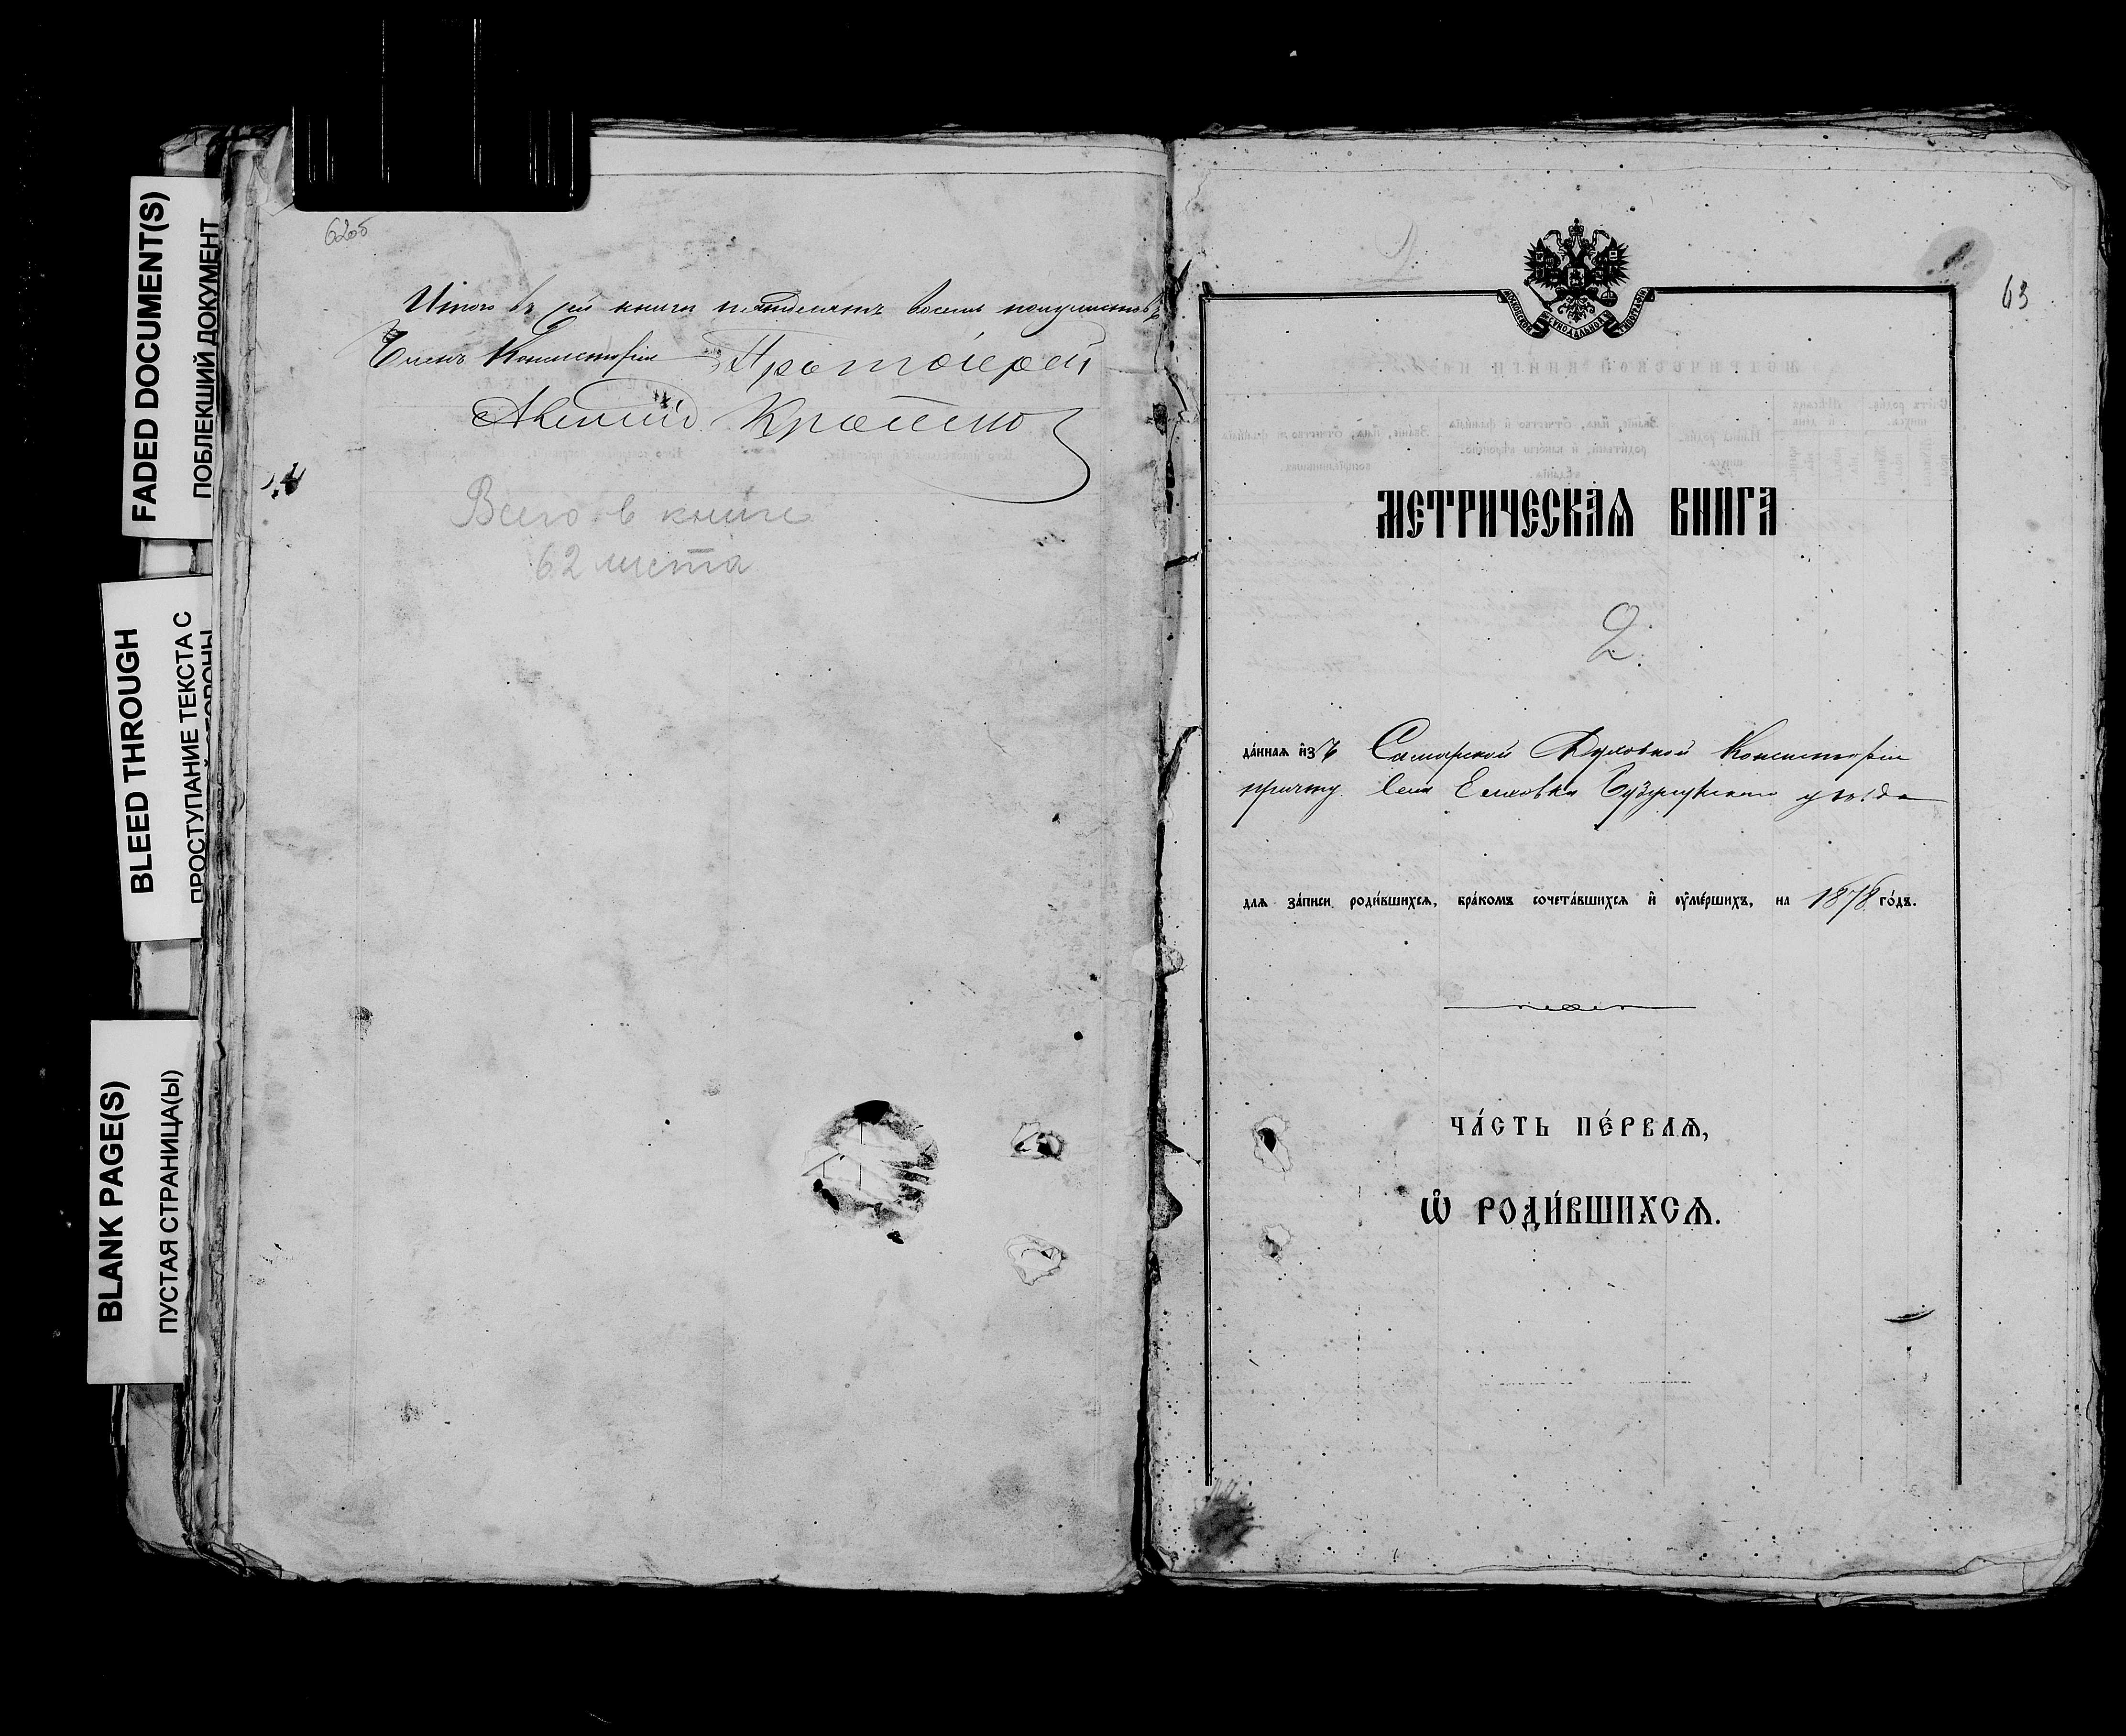 FADED DOCUMENT(S)
ПОБЛЕКШИЙ ДОКУМЕНТ
BLEED THROUGH
ПРОСТУПАНИЕ ТЕКСТА С
BLANK PAGE(S)
ПУСТАЯ СТРАНИЦА(Ы)
62об
Итого въ сей книги пятьдесятъ восемь полулистовъ
Членъ Консисторіи Протоіерей
Всего в книге
62 листа
63
МОСКОВСКОЙ СѴНОДАЛЬНОЙ ТИПОГРАФІИ
МЕТРИЧЕСКАѦ КНИГА
2.
да́ннаѧ и҆зъ Самарской Духовной Консисторіи
причту села Елховки Бузулукскаго уѣзда
длѧ за́писи роди́вшихсѧ, бра́комъ сочета́вшихсѧ и҆ ᲂу҆ме́ршихъ, на 1878 го́дъ.
ЧА́СТЬ ПЕ́РВАѦ,
Ѡ҆ РОДИ́ВШИХСѦ.